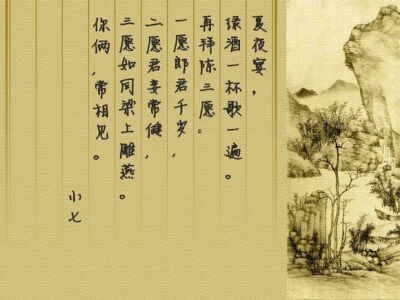 夏夜宴，
绿酒一杯歌一遍。
再拜陈三愿：
一愿郎君千岁，
二愿君妾常健，
三愿如同梁上雕燕。
你俩，常相见。
小七